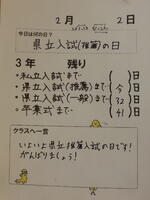 2月 2日
今日は何の日?
県立入試(推薦)の日
3年 残り
・私立入試まで ( )日
・県立入試(推薦)まで (今)日
・県立入試(一般)まで (32)日
・卒業式まで (41)日
クラスへ一言
いよいよ県立推薦入試の日です!
がんばりましょう!